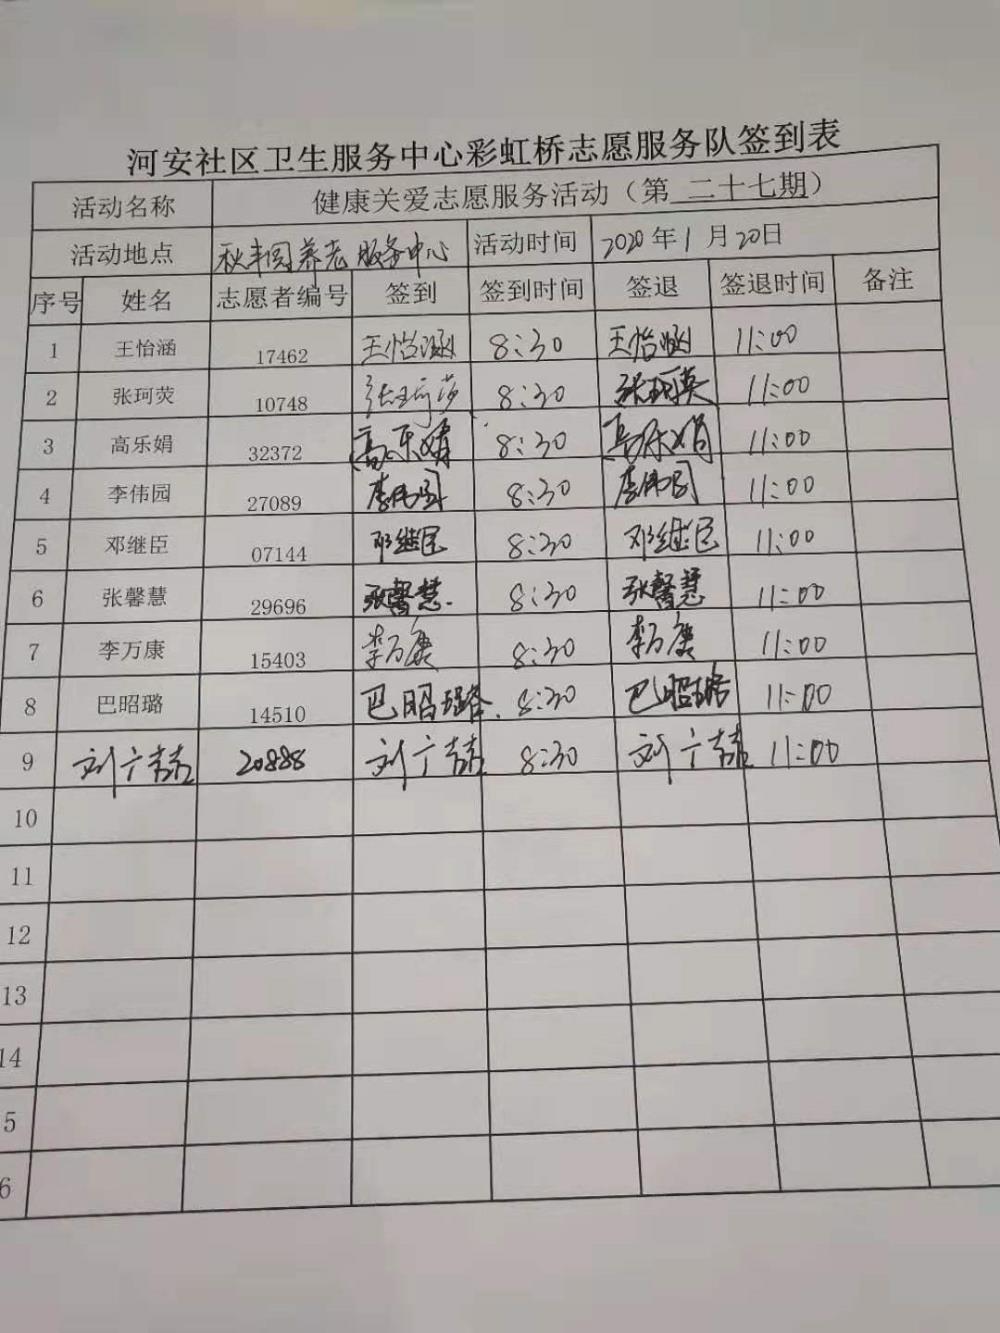 河安社区卫生服务中心彩虹桥志愿服务队签到表
活动名称 健康关爱志愿服务活动（第 二十七期）
活动地点 秋丰园养老服务中心 活动时间 2020年1月20日
序号 姓名 志愿者编号 签到 签到时间 签退 签退时间 备注
1 王怡涵 17462 王怡涵 8:30 王怡涵 11:00
2 张珂荧 10748 张珂荧 8:30 张珂荧 11:00
3 高乐娟 32372 高乐娟 8:30 高乐娟 11:00
4 李伟园 27089 李伟园 8:30 李伟园 11:00
5 邓继臣 07144 邓继臣 8:30 邓继臣 11:00
6 张馨慧 29696 张馨慧. 8:30 张馨慧 11:00
7 李万康 15403 李万康 8:30 李万康 11:00
8 巴昭璐 14510 巴昭璐. 8:30 巴昭璐 11:00
9 刘广喆 20888 刘广喆 8:30 刘广喆 11:00
10
11
12
13
14
5
6